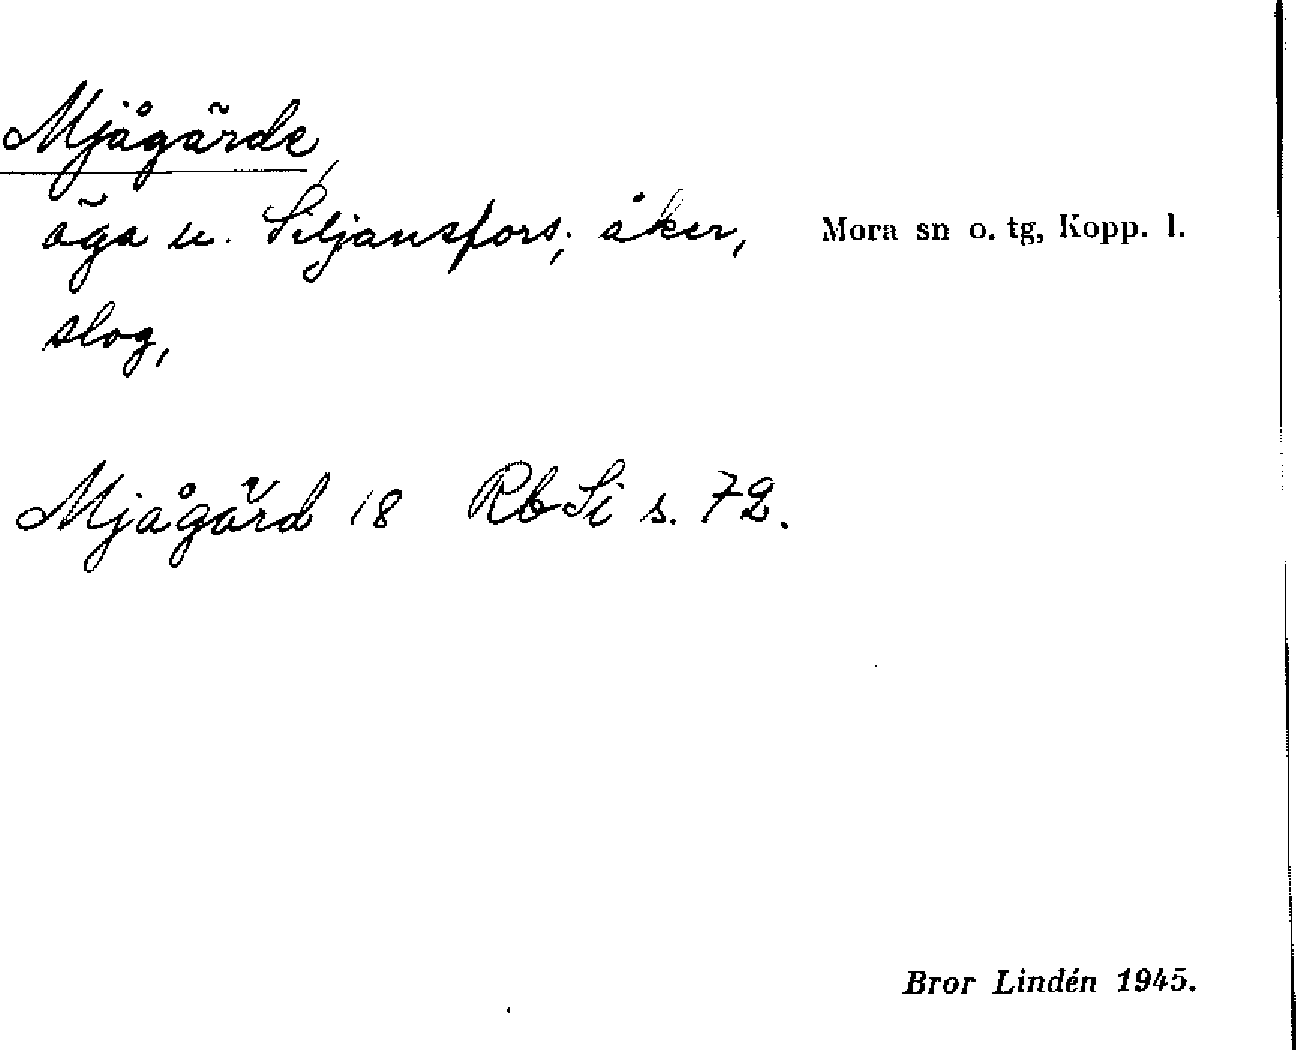 Mjågärde,
äga u. Siljansfors; åker,
Mora sn o. tg, Kopp. l.
slog,
Mjågärd 18 RbSi s. 72.
Bror Lindén 1945.